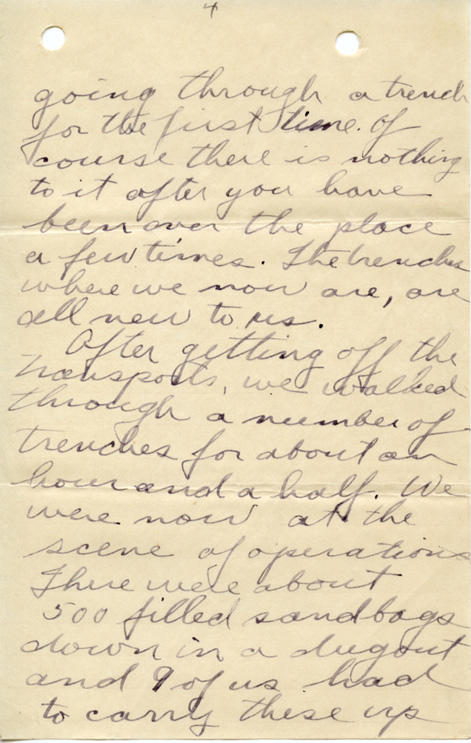 4
going through a trench
for the first time. Of
course there is nothing
to it after you have
been over the place
a few times. The trenches
where we now are, are
all new to us.
After getting off the
transports, we walked
through a number of
trenches for about an
hour and a half. We
were now at the
scene of operations
There were about
500 filled sandbags
down in a dugout
and 9 of us had
to carry these up